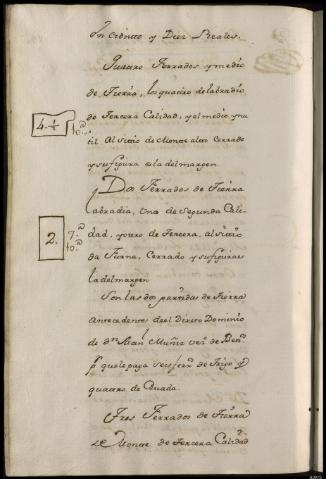 Ciento y Diez Reales.
Quatro Ferrados y medio
de Tierra, los quatro de labradio
de Tercera Calidad, y el medio ynu
til. Al Sitio de Monte alto Cerrado
y su figura es la del margen
4 ½
Dos Ferrados de Tierra
Labradia, Uno de Segunda Cali
dad, y otro de Tercera, al Sitio
da Cerrado y su figura es
2.
la del margen
Son las dos partidas de tierra
antecedentes de el Direto Dominio
de dn Juan Muñiz
que le paga de trigo y
quatro de Cevada
Tres Ferrados de Tierra
de Monte de Tercera Calidad